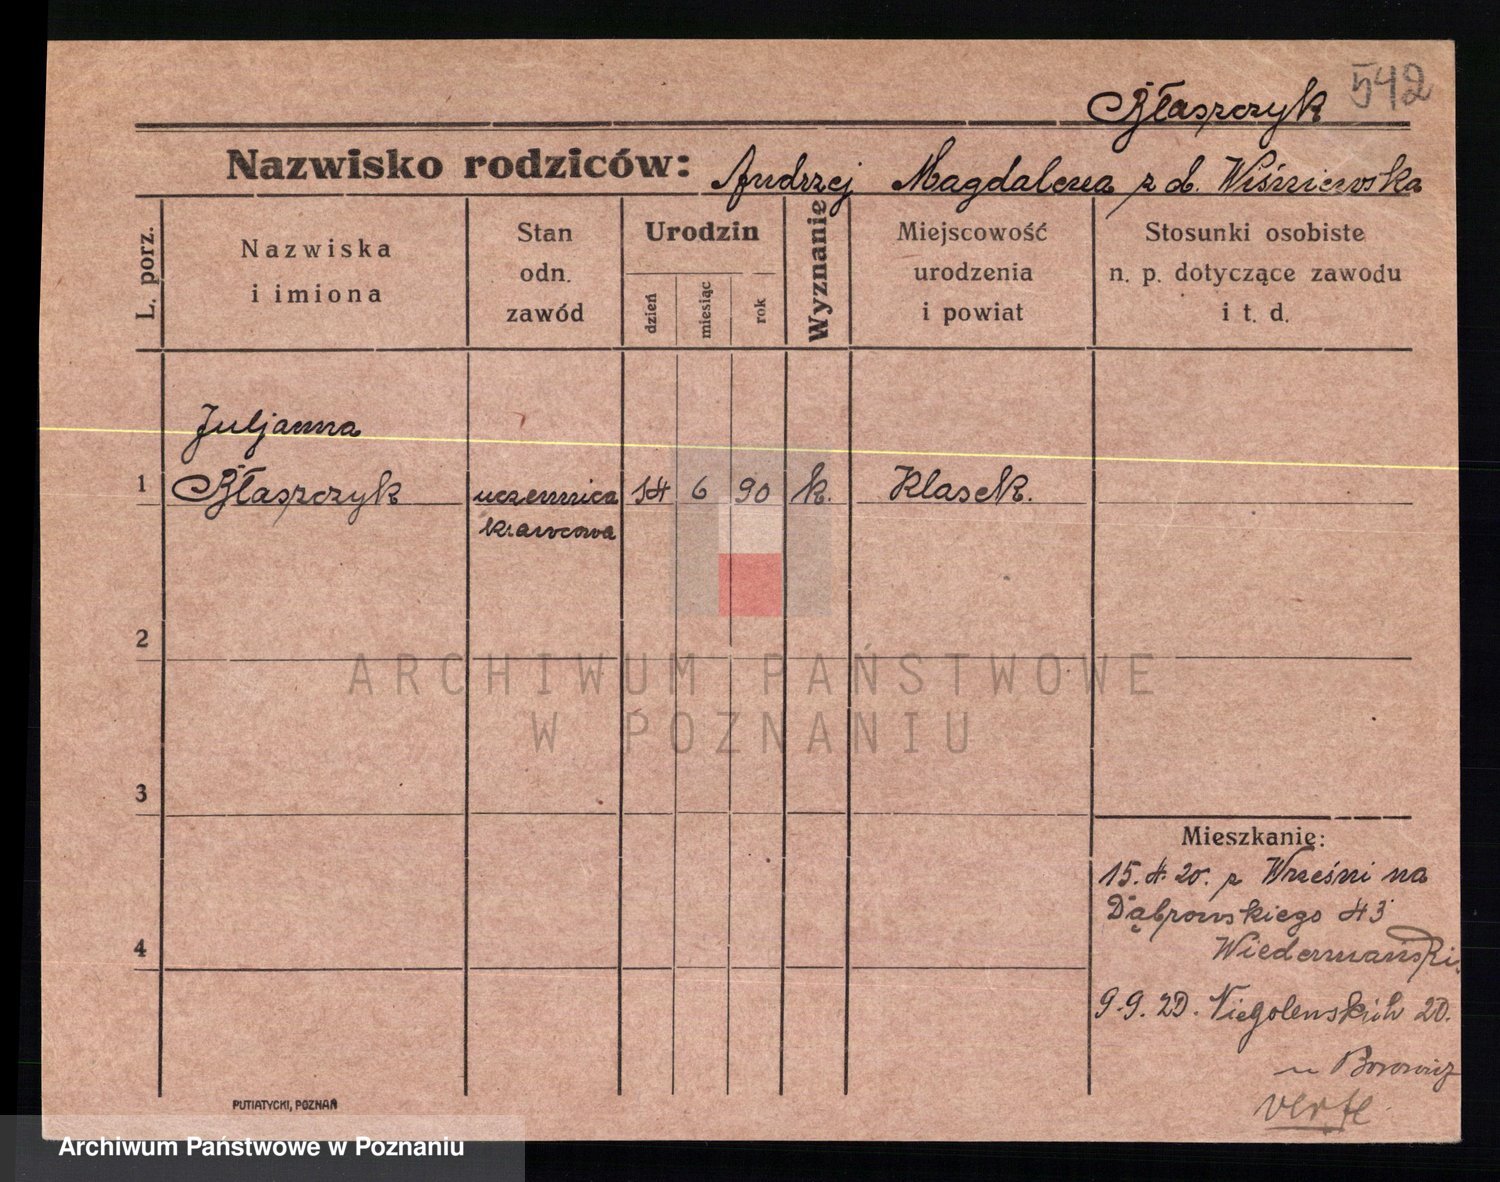 542
Błaszczyk
Nazwisko rodziców: Andrzej Magdalena z d. Wiśniewska
L. porz.
Nazwiska
i imiona
Stan
odn.
zawód
Urodzin
dzień
miesiąc
rok
Wyznanie
Miejscowość
urodzenia
i powiat
Stosunki osobiste
n. p. dotyczące zawodu
i t. d.
Juljanna
1 Błaszczyk uczennica 14 6 90 k. Klasek.
krawcowa
2
ARCHIWUM PAŃSTWOWE
W POZNANIU
3
Mieszkanie:
15.4.20. z Wrześni na
Dąbrowskiego 43
4
Wiedermański.
9.9.20. Niegolewskich 20.
u Borowicz
verte
PUTIATYCKI, POZNAŃ
Archiwum Państwowe w Poznaniu